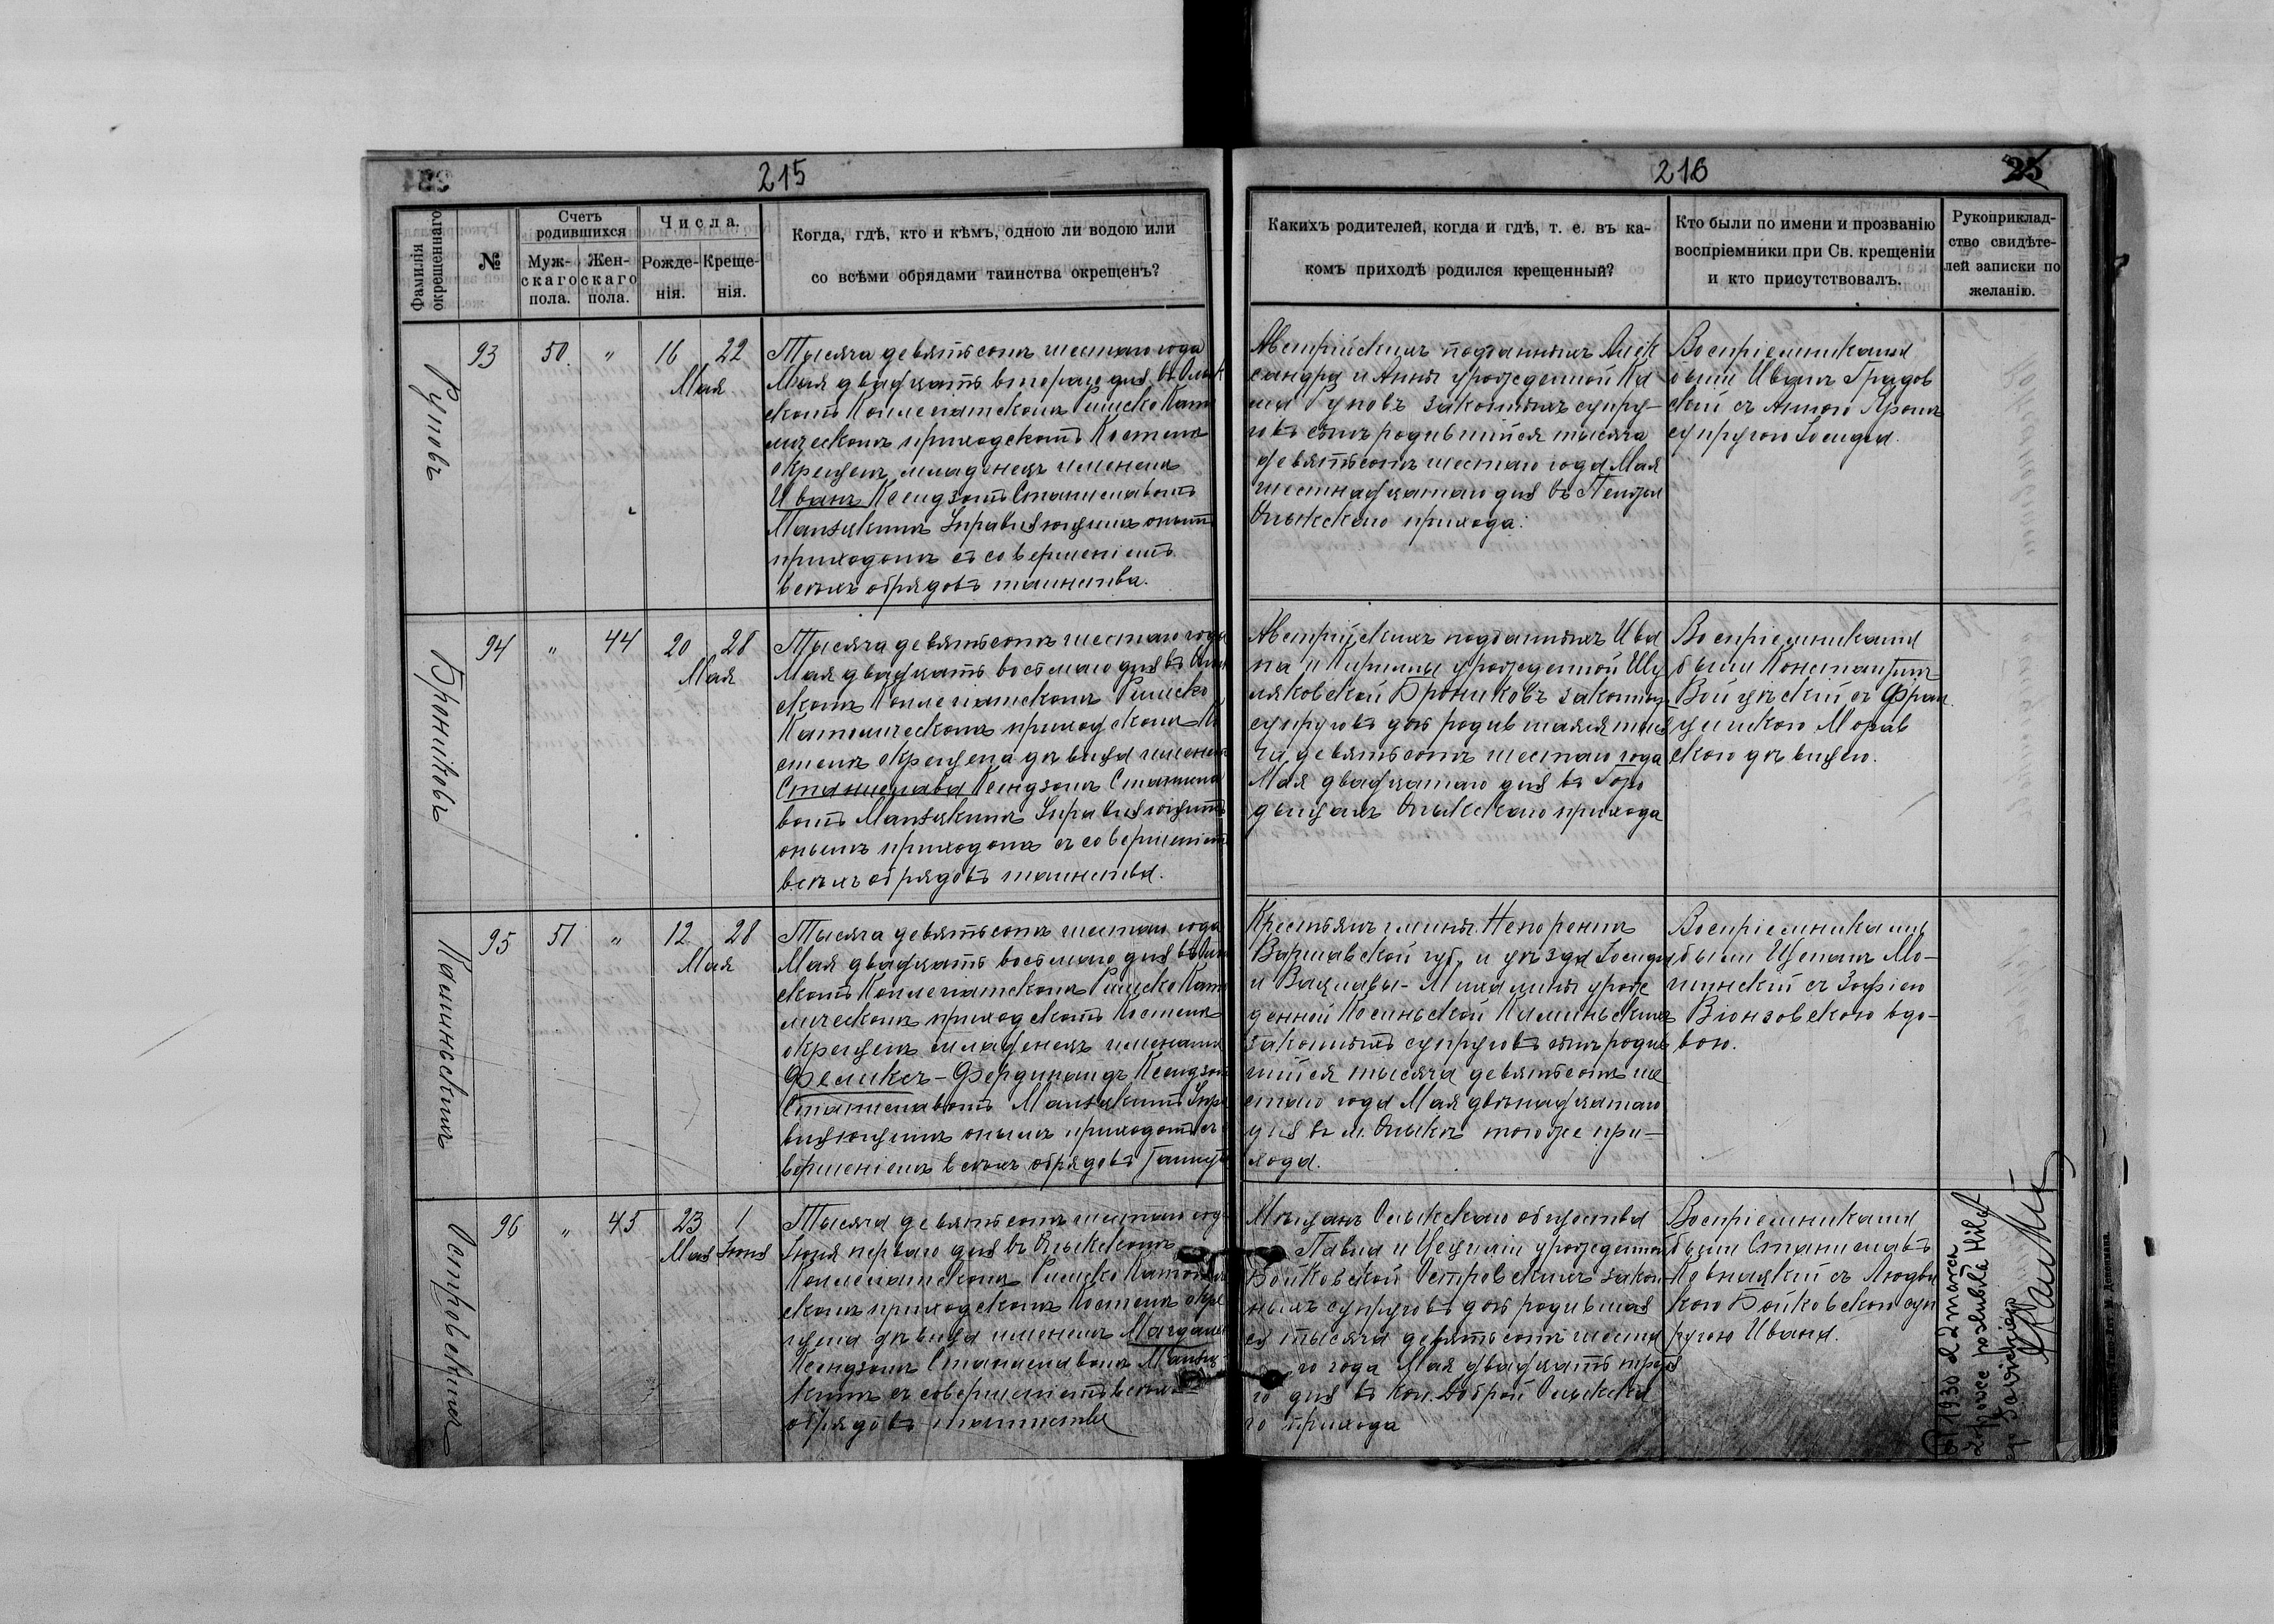 215
Фамилія окрещеннаго
№
Счетъ родившихся
Мужскаго пола.
Женскаго пола.
Числа.
Рожденія.
Крещенія.
Когда, гдѣ, кто и кѣмъ, одною ли водою или
со всѣми обрядами таинства окрещенъ?
93
50.
"
16 22
Мая
Тысяча девятьсотъ шестаго года
Мая двадцать втораго дня въ Олык
скомъ Коллегіатскомъ Римско Като
лическомъ приходскомъ Костелѣ
окрещенъ младенецъ именемъ
Иванъ Ксендзомъ Станиславомъ
Управляющимъ онымъ
приходомъ съ совершеніемъ
всѣхъ обрядовъ таинства.
Бронiковъ
94
"
44
20 28
Мая
Тысяча девятьсотъ шестаго года
Мая двадцать восьмаго дня въ Олы
скомъ Коллегіатскомъ Римско
Католическомъ приходскомъ Ко
стелѣ окрещена дѣвица именемъ
Станислава Ксендзомъ Станисла
вомъ Управляющимъ
онымъ приходомъ съ совершеніемъ
всѣхъ обрядовъ таинства.
95
51
"
12 28
Мая
Тысяча девятьсотъ шестаго года
Мая двадцать восьмаго дня въ Олы
скомъ Коллегіатскомъ Римско Като
лическомъ приходскомъ Костелѣ
окрещенъ младенецъ именами
Феликсъ-Фердинандъ Ксендзомъ
Станиславомъ Упра
вляющимъ онымъ приходомъ съ
вершеніемъ всѣхъ обрядовъ Таинства
Островскихъ
96
"
45
23 1
Мая Іюня
Тысяча девятьсотъ шестаго года
Іюня перваго дня въ Олыкскомъ
Коллегіатскомъ Римско Католич
скомъ приходскомъ Костелѣ окре
щена дѣвица именемъ
Ксендзомъ Станиславомъ
съ совершеніемъ всѣхъ
обрядовъ таинства
216
25
Какихъ родителей, когда и гдѣ, т. е. въ ка-
комъ приходѣ родился крещенный?
Кто были по имени и прозванію
воспріемники при Св. крещеніи
и кто присутствовалъ.
Рукоприклад-
ство свидѣте-
лей записки по
желанію.
Австрійскихъ подданныхъ Алек
сандра и Анны урожденной
законныхъ супру-
говъ сынъ родившійся тысяча
девятьсотъ шестаго года Мая
шестнадцатаго дня въ
Олыкскаго прихода.
Воспріемниками
были Иванъ Градов
скій съ Анною
супругою Іосифа.
Австрійскихъ подданныхъ Ива
на и урожденной Шу
ляковской Брониковъ законныхъ
супруговъ дочь родившаяся тыся
ча девятьсотъ шестаго года
Мая двадцатаго дня въ Горо
дищахъ Олыкскаго прихода
Воспріемниками
были Константинъ
съ Фран
цишкою Морав
скою дѣвицею.
Крестьянъ гмины Непорентъ
Варшавской губ. и уѣзда Іосифа
и Вацлавы-Михалины урож
денной
законныхъ супруговъ сынъ родив
шійся тысяча девятьсотъ ше
стаго года Мая двѣнадцатаго
дня въ м. Олыкѣ того же при-
хода.
Воспріемниками
были Щепанъ Мо-
съ Зофіею
вдо-
вою.
Мѣщанъ Олыкскаго общества
Павла и Цециліи урожденной
Бойковской Островскихъ закон
ныхъ супруговъ дочь родившая
ся тысяча девятьсотъ шеста
го года Мая двадцать третья
го дня въ кол. Доброй Олыкска
го прихода
Воспріемниками
были Станиславъ
съ Людви
кою Бойковскою суп
ругою Ивана.
1930 d 2 marca